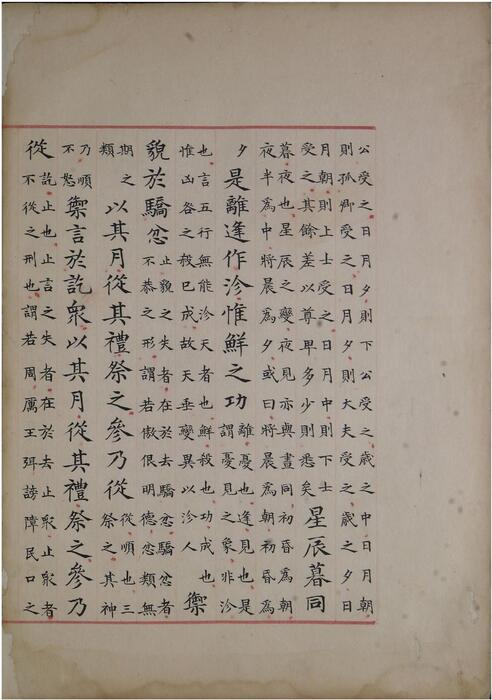 公受之日月夕則下公受之歲之中日月朝
則孤卿受之日月夕則大夫受之歲之夕日
月朝則上士受之日月中則下士
受之其餘差以尊卑多少則悉矣
星辰暮同
暮夜也星辰之變夜見亦與晝同初昏為朝
夜半為中將晨為夕或曰將晨為朝初昏為
夕
是離逢作沴惟鮮之功
離憂也逢見也是
謂憂見之象非沴
也言五行無能沴天者也鮮殺也功成也
惟凶咎之殺已成故天垂變異以沴人
禦
貌於驕忿
止貌之失者在於去驕忿驕忿者
不恭之形謂若傲佷明德忿類無
期之
類
以其月從其禮祭之參乃從
從順也三
祭之其神
乃順
不怒
禦言於訖眾以其月從其禮祭之參乃
從
訖止也止言之失者在於去止眾者
不從之刑也謂若周厲王弭謗障民口之